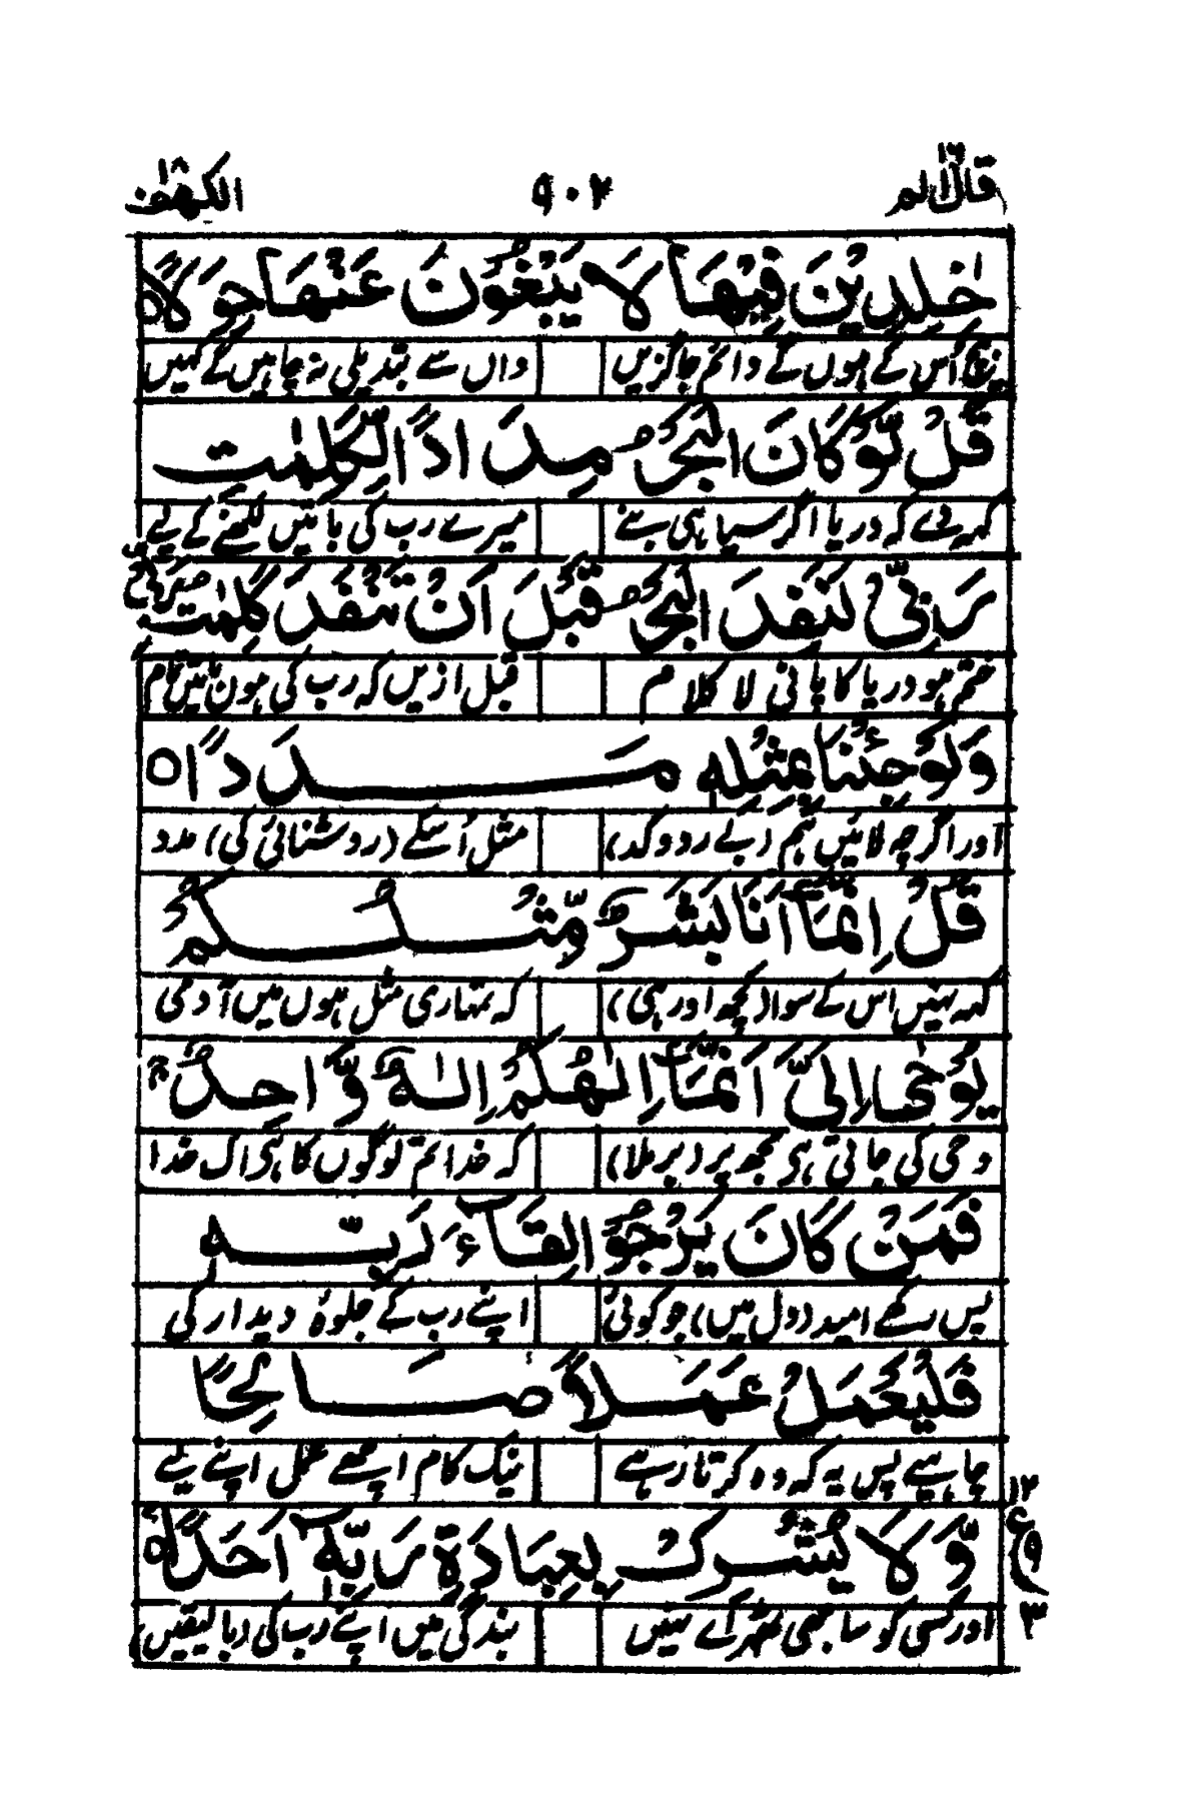 قال الم ١٦ ٩٠٢ الكهف ١٨
خٰلِدِيْنَ فِيْهَا لَا يَبْغُوْنَ عَنْهَا حِوَلًا ○
بیچ اُس کے ہوں گے دائم جاگزیں واں سے تبدیلی نہ چاہیں گے کہیں
قُلْ لَّوْ كَانَ الْبَحْرُ مِدَادًا لِّكَلِمٰتِ
کہہ دے کہ دریا اگر سیاہی بنے میرے رب کی باتیں لکھنے کے لیے
رَبِّيْ لَنَفِدَ الْبَحْرُ قَبْلَ اَنْ تَنْفَدَ كَلِمٰتُ
ختم ہو دریا کا پانی لا کلام قبل ازیں کہ رب کی ہوں باتیں تمام
وَلَوْ جِئْنَا بِمِثْلِهٖ مَدَدًا ○
اور اگرچہ لائیں ہم (بے رد و کد) مثل اُسکے (روشنائی کی) مدد
قُلْ اِنَّمَآ اَنَا بَشَرٌ مِّثْلُكُمْ
کہہ نہیں اس کے سوا (کچھ اور ہی) کہ تمہاری مثل ہوں میں آدمی
يُوْحٰٓى اِلَيَّ اَنَّمَآ اِلٰهُكُمْ اِلٰهٌ وَّاحِدٌ ۚ
وحی کی جاتی ہی مجھ پر (برملا) کہ خدا تم لوگوں کا ہی اک خدا
فَمَنْ كَانَ يَرْجُوْا لِقَآءَ رَبِّهٖ
پس رکھے امید (دل میں) جو کوئی اپنے رب کے جلوہ دیدار کی
فَلْيَعْمَلْ عَمَلًا صَالِحًا
چاہیے پس یہ کہ وہ کرتا رہے نیک کام اچھے عمل اپنے لیے
وَّلَا يُشْرِكْ بِعِبَادَةِ رَبِّهٖٓ اَحَدًا ○
اور کسی کو ساجھی ٹھہرائے نہیں بندگی میں اپنے رب کی (بالیقیں)
١٢
ع
٣